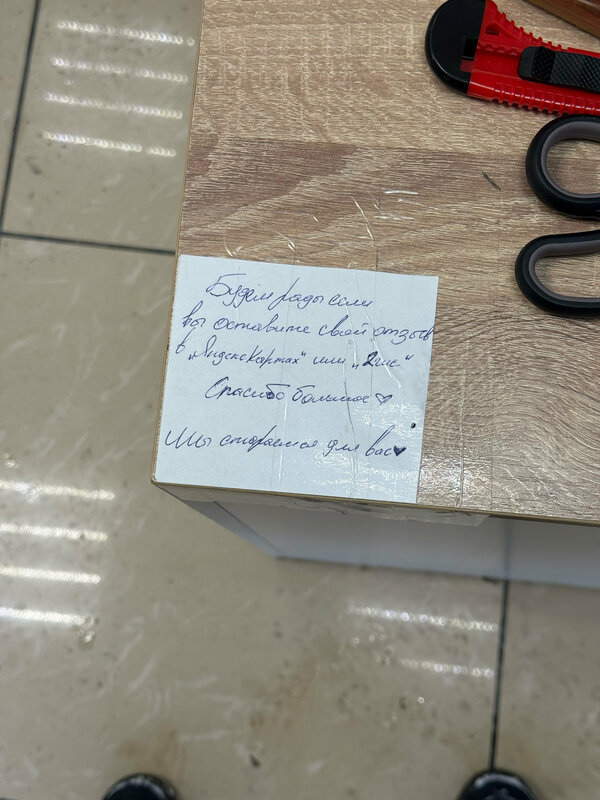 Будем рады если
вы оставите свой отзыв
в „Яндекс Картах" или „2гис"
Спасибо большое♡
Мы стараемся для вас♥